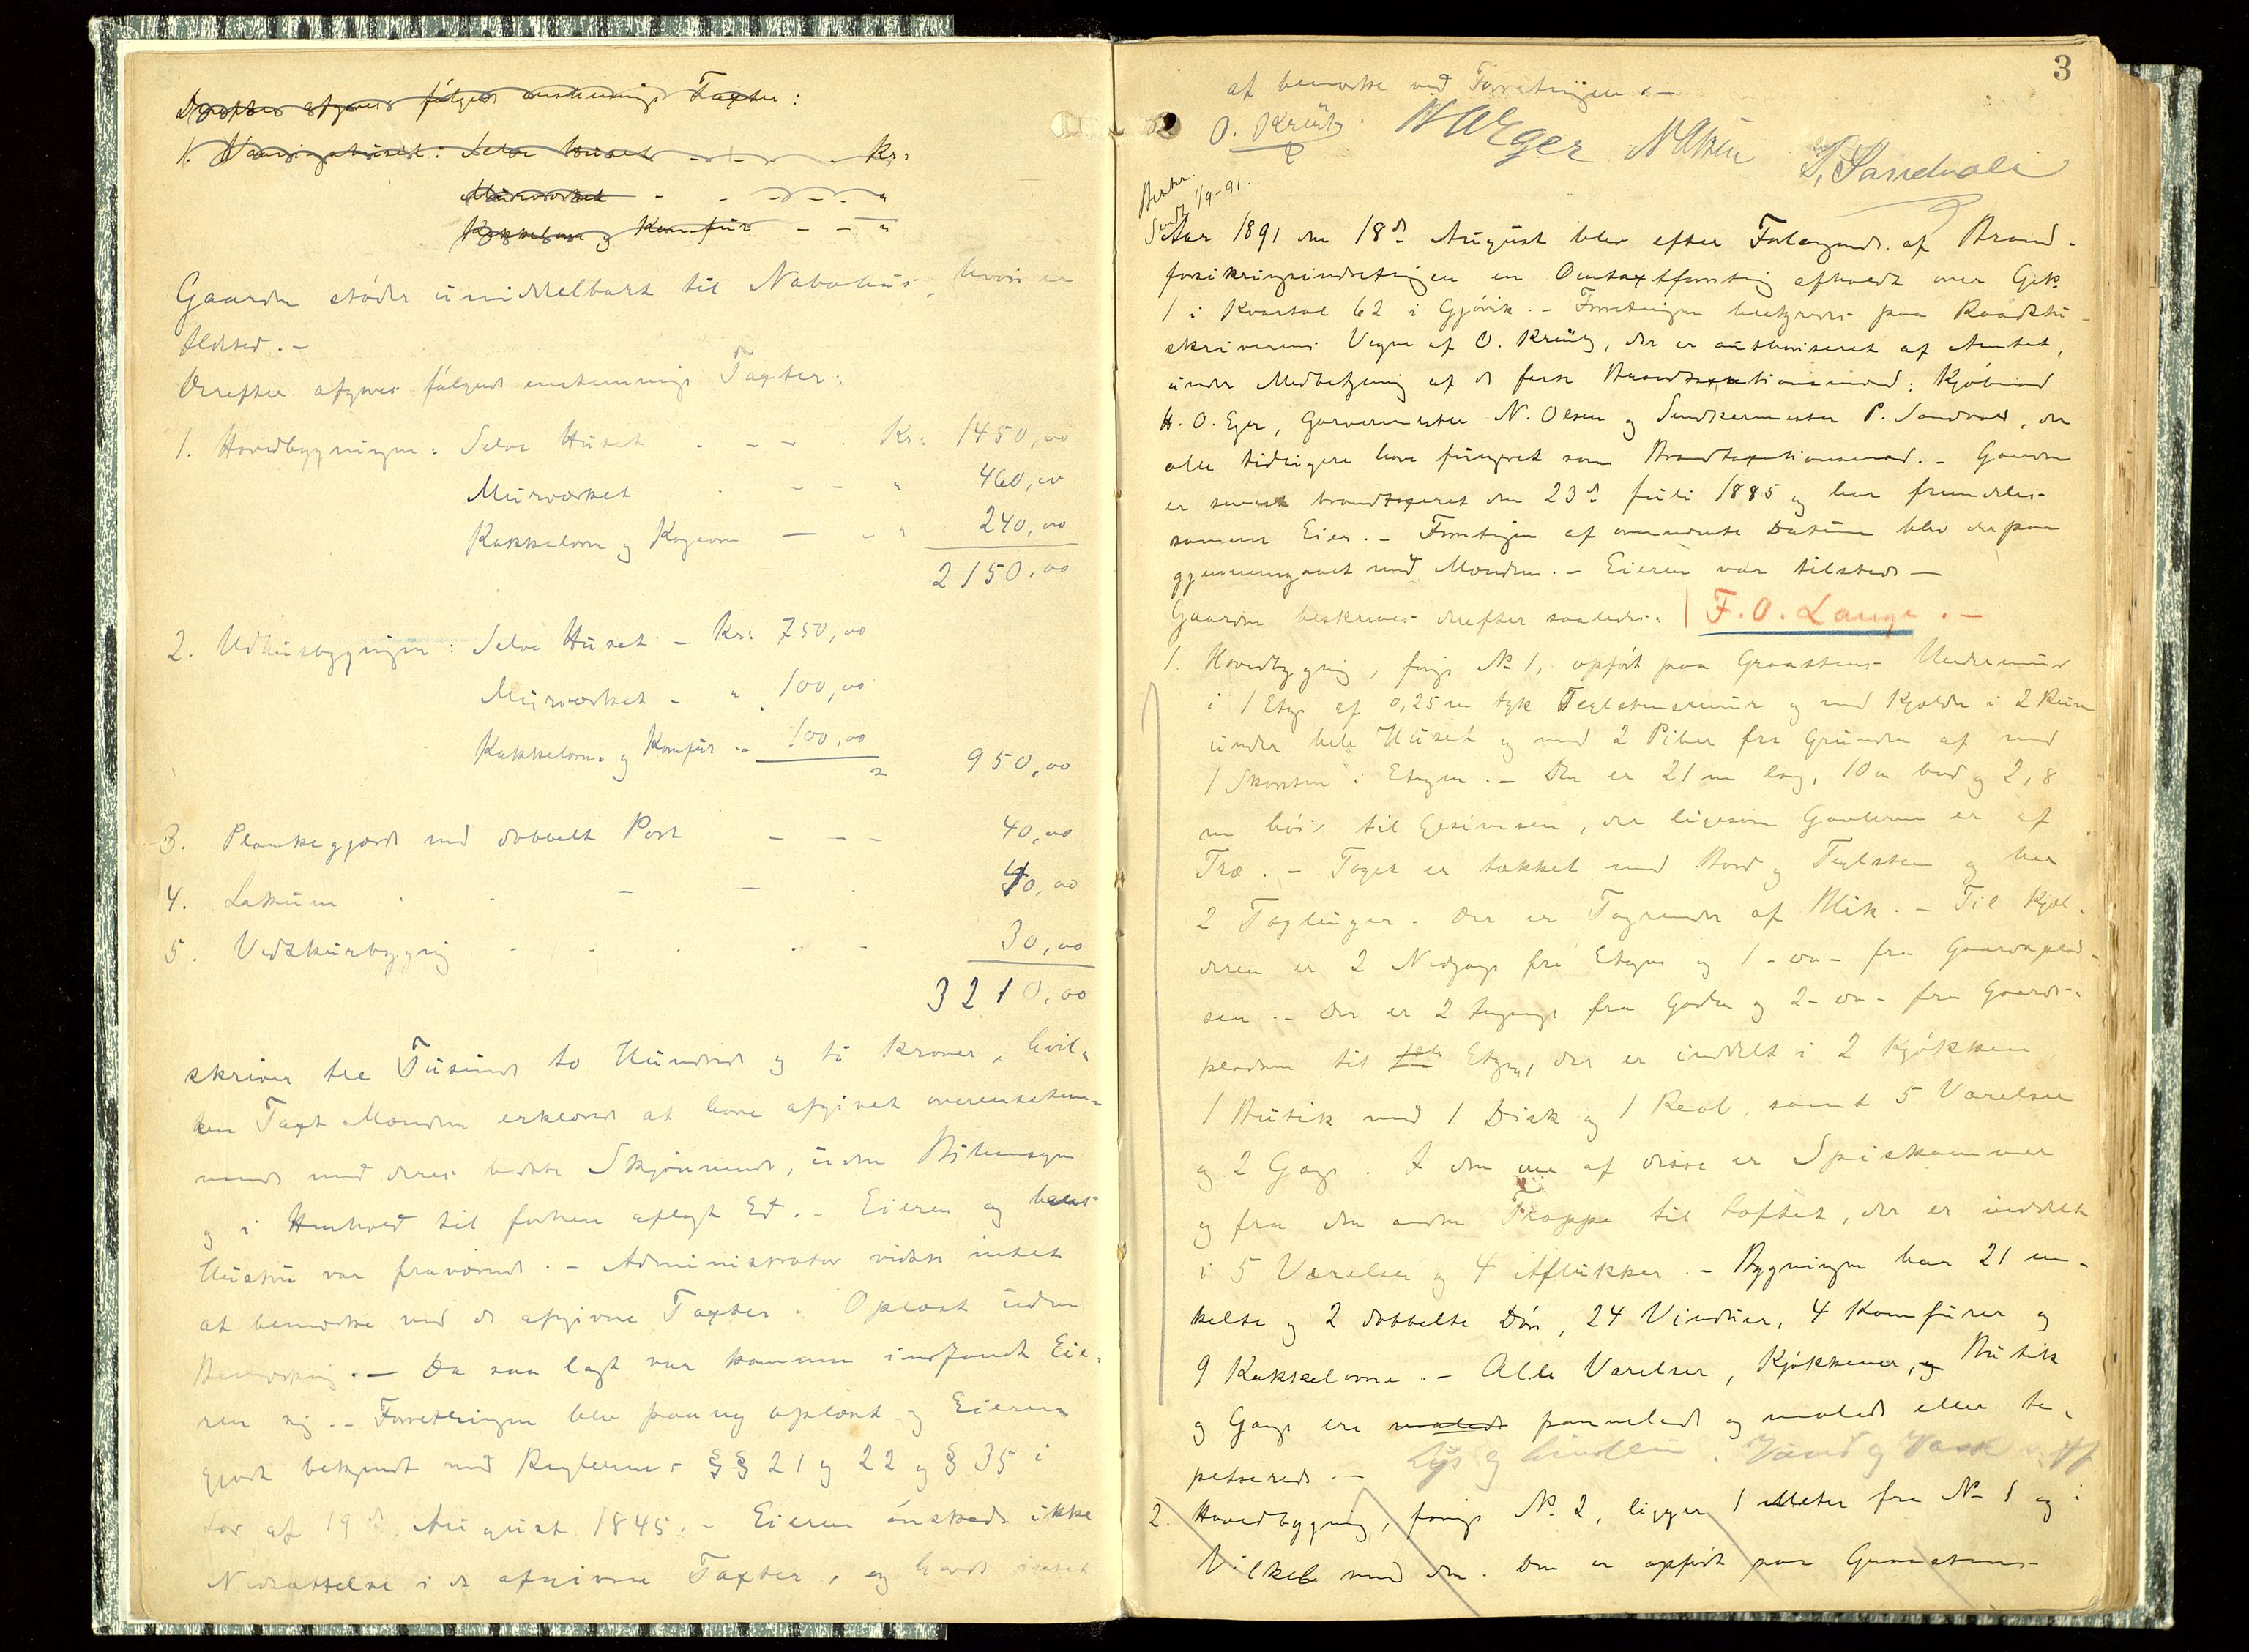 Derefter afgives følgende enstemmige Taxter:
1. Vaaningshuset: Selve Huset - - - Kr:
Murværket - - - "
Kakkelovne og Komfur - - "
Gaarden støder umiddelbart til Nabohus, hvori er
Ildsted. -
Derefter afgives følgende enstemmige Taxter:
1. Hovedbygningen: Selve Huset - - - Kr: 1450,00
Murværket - - " 460,00
Kakkelovne og Kogeovn - - " 240,00
2150,00
2. Udhusbygningen: Selve Huset - Kr: 750,00
Murværket - " 100,00
Kakkelovne og Komfur - 100,00
950,00
3. Plankegjærde med dobbelt Port - - - 40,00
4. Lakum - - - 40,00
5. Vedskurbygning - - - 30,00
3210,00
skriver tre Tusinde to Hundrede og ti Kroner, hvil-
ken Taxt Mændene erklærede at have afgivet overensstem-
mende med deres bedste Skjønnende, uden Bihensyn
og i Henhold til forhen aflagt Ed. - Eieren og hans
Hustru var fraværende. - Administrator vidste intet
at bemærke ved de afgivne Taxter. Oplæst uden
Bemærkning. - Da saa lagt var kommen indfandt Eie-
ren sig. - Forretningen blev paany oplæst og Eieren
gjort bekjendt med Reglerne i §§ 21 og 22 og § 35 i
Lov af 19de August 1845. - Eieren ønskede ikke
Nedsættelse i de afgivne Taxter, og havde intet
3
at bemærke ved Forretningen. -
O. Kreutz. H O Eger N Olsen P. Sandvold
1/9-91.
Aar 1891 den 18de August blev efter Forlangende af Brand-
forsikringsindretningen en Omtaxtforretning afholdt over Gaard No
1 i Kvartal 62 i Gjøvik. - Forretningen bestyredes paa Raadstu-
skriverens Vegne af O. Kreutz, der er authoriseret af Amtet,
under Medbetjening af de faste Brandtaxationsmænd: Kjøbmand
H. O. Eger, Garvermester N. Olsen og Snedkermester P. Sandvold, der
alle tidligere have fungeret som Brandtaxationsmænd. - Gaarden
er senest brandtaxeret den 23de Juli 1885 og har fremdeles
samme Eier. - Forretningen af ovennævnte Datum blev derpaa
gjennemgaaet med Mændene. - Eieren var tilstede -
Gaarden beskrives derefter saaledes: | F. O. Lange. -
1. Hovedbygning, forrige No 1, opført paa Graastens Undermur
i 1 Etage af 0,25 m tyk Teglstensmur og med Kjælder i 2 Rum
under hele Huset og med 2 Piber fra Grunden af med
1 Skorsten i Etagen. - Den er 21 m lang, 10 m bred og 2,8
m høi til Gesimsen, der ligesom Gavlerne er af
Træ. - Taget er tækket med Bord og Teglsten og har
2 Tagluger. Der er Tagrender af Blik. - Til Kjæl-
deren er 2 Nedgange fra Etagen og 1 - do - fra Gaardsplad-
sen. - Der er 2 Indgange fra Gaden og 2 - do - fra Gaards-
pladsen til Etagen, der er inddelt i 2 Kjøkkener
1 Butik med 1 Disk og 1 Reol, samt 5 Værelser
og 2 Gange. I den ene af disse er Spiskammer
og fra den anden Trappe til Loftet, der er inddelt
i 5 Værelser og 4 Aflukker. - Bygningen har 21 en-
kelte og 2 dobbelte Døre, 24 Vinduer, 4 Komfurer og
9 Kakkelovne. - Alle Værelser, Kjøkkener, og Butik
og Gange ere malede pannelede og malede eller ta-
petserede. - Vand og Vask
2. Hovedbygning, forrige No 2, ligger 1 Meter fra No 1 og i
Vinkel med den. Den er opført paa Graastens-